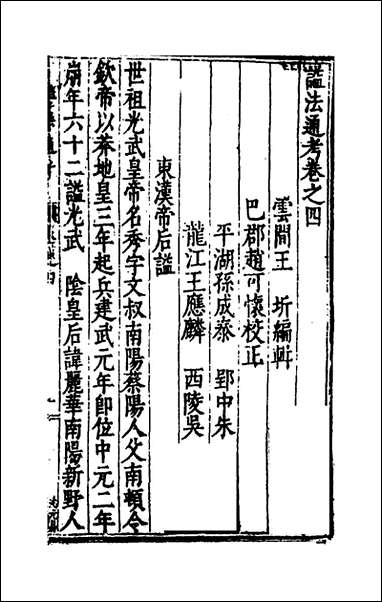 諡法通考卷之四
雲間王　圻編輯
巴郡趙可懷校正
平湖孫成泰　郢中朱
龍江王應麟　西陵吳
東漢帝后諡
世祖光武皇帝名秀字文叔南陽蔡陽人父南頓令
欽帝以莽地皇三年起兵建武元年即位中元二年
崩年六十二諡光武　陰皇后諱麗華南陽新野人